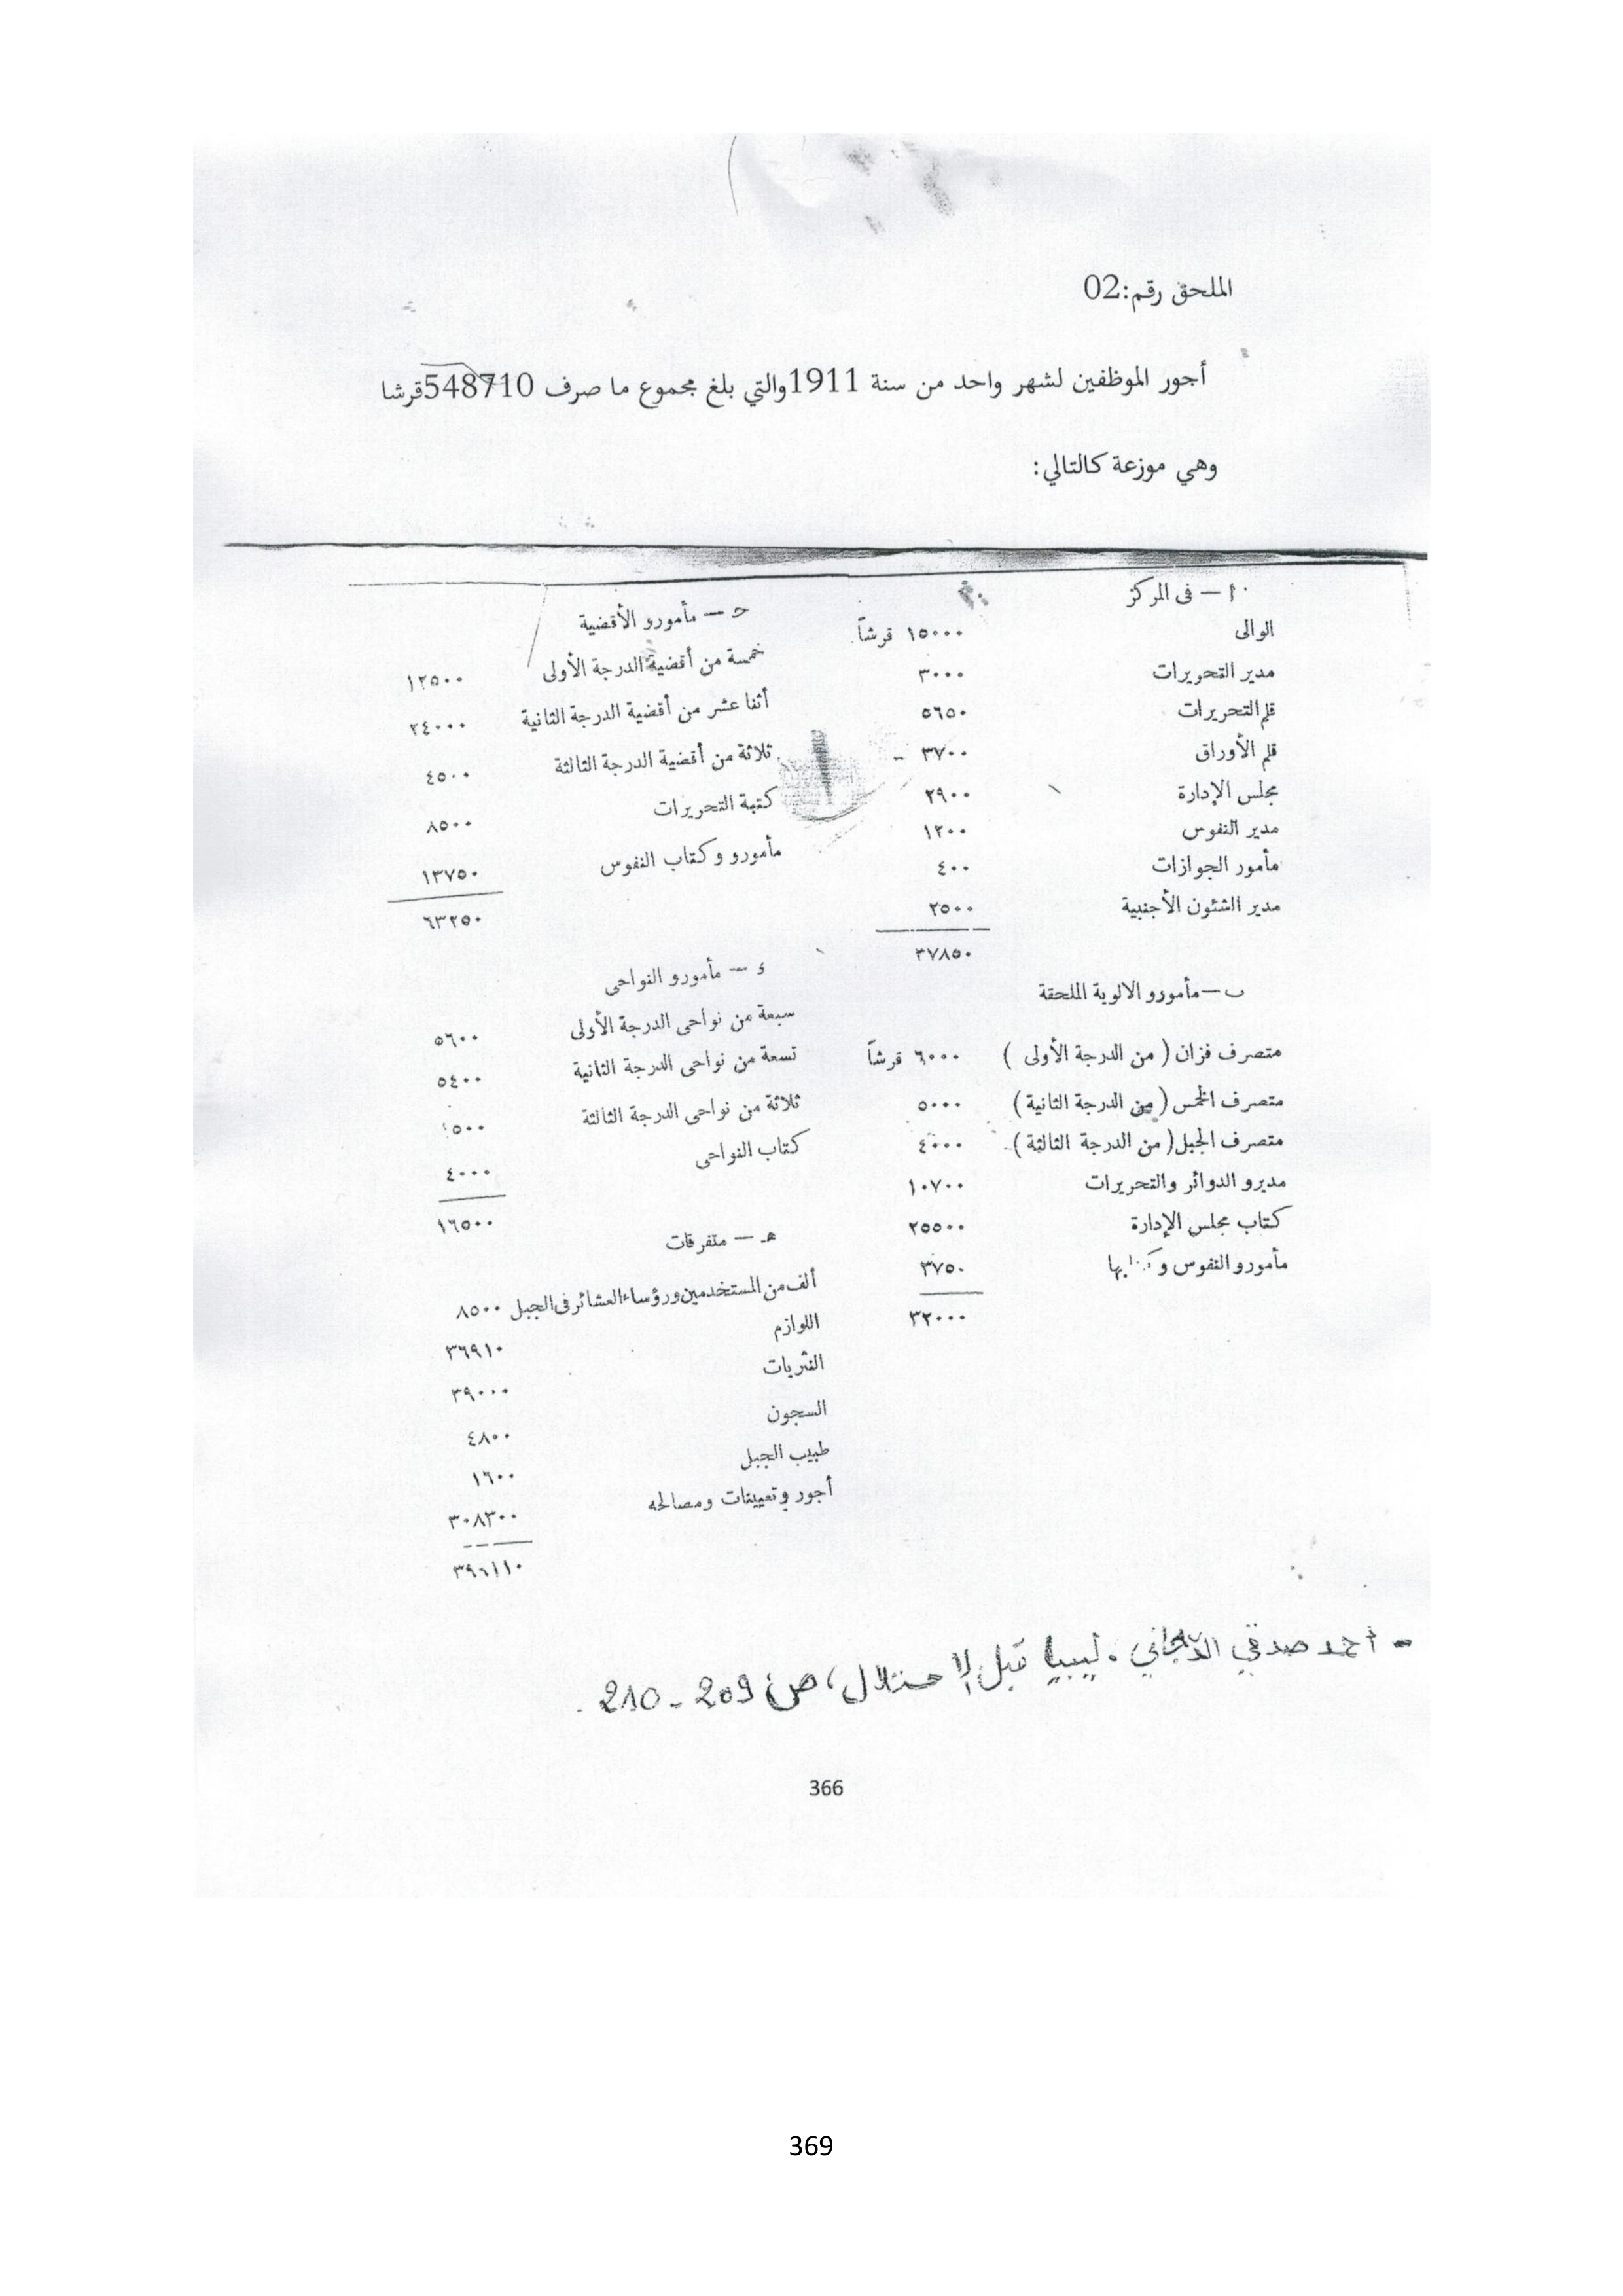 الملحق رقم:02
أجور الموظفين لشهر واحد من سنة 1911والتي بلغ مجموع ما صرف 548710قرشا
وهي موزعة كالتالي:
ا — فى المركز
الوالى ١٥٠٠٠ قرشاً
مدير التحريرات ٣٠٠٠
قلم التحريرات ٥٦٥٠
قلم الأوراق ٣٧٠٠
مجلس الإدارة ٢٩٠٠
مدير النفوس ١٢٠٠
مأمور الجوازات ٤٠٠
مدير الشئون الأجنبية ٢٥٠٠
٣٧٨٥٠
ب — مأمورو الالوية الملحقة
متصرف فزان ( من الدرجة الأولى ) ٦٠٠٠ قرشاً
متصرف الخمس ( من الدرجة الثانية ) ٥٠٠٠
متصرف الجبل ( من الدرجة الثالثة ) ٤٠٠٠
مديرو الدوائر والتحريرات ١٠٧٠٠
كتاب مجلس الإدارة ٢٥٥٠٠
مأمورو النفوس ٣٧٥٠
٣٢٠٠٠
ح — مأمورو الأقضية
خمسة من أقضية الدرجة الأولى ١٢٥٠٠
أثنا عشر من أقضية الدرجة الثانية ٢٤٠٠٠
ثلاثة من أقضية الدرجة الثالثة ٤٥٠٠
كتبة التحريرات ٨٥٠٠
مأمورو وكتاب النفوس ١٣٧٥٠
٦٣٢٥٠
ء — مأمورو النواحى
سبعة من نواحى الدرجة الأولى ٥٦٠٠
تسعة من نواحى الدرجة الثانية ٥٤٠٠
ثلاثة من نواحى الدرجة الثالثة
كتاب النواحى ٤٠٠٠
١٦٥٠٠
هـ — متفرقات
ألف من المستخدمين ورؤساء العشائر فى الجبل ٨٥٠٠
اللوازم ٣٦٩١٠
النثريات ٣٩٠٠٠
السجون ٤٨٠٠
طبيب الجبل ١٦٠٠
أجور وتعيينات ومصالحه ٣٠٨٣٠٠
٣٩٦١١٠
- أحمد صدقي الدجاني. ليبيا قبل الاحتلال، ص 209 - 210.
366
369